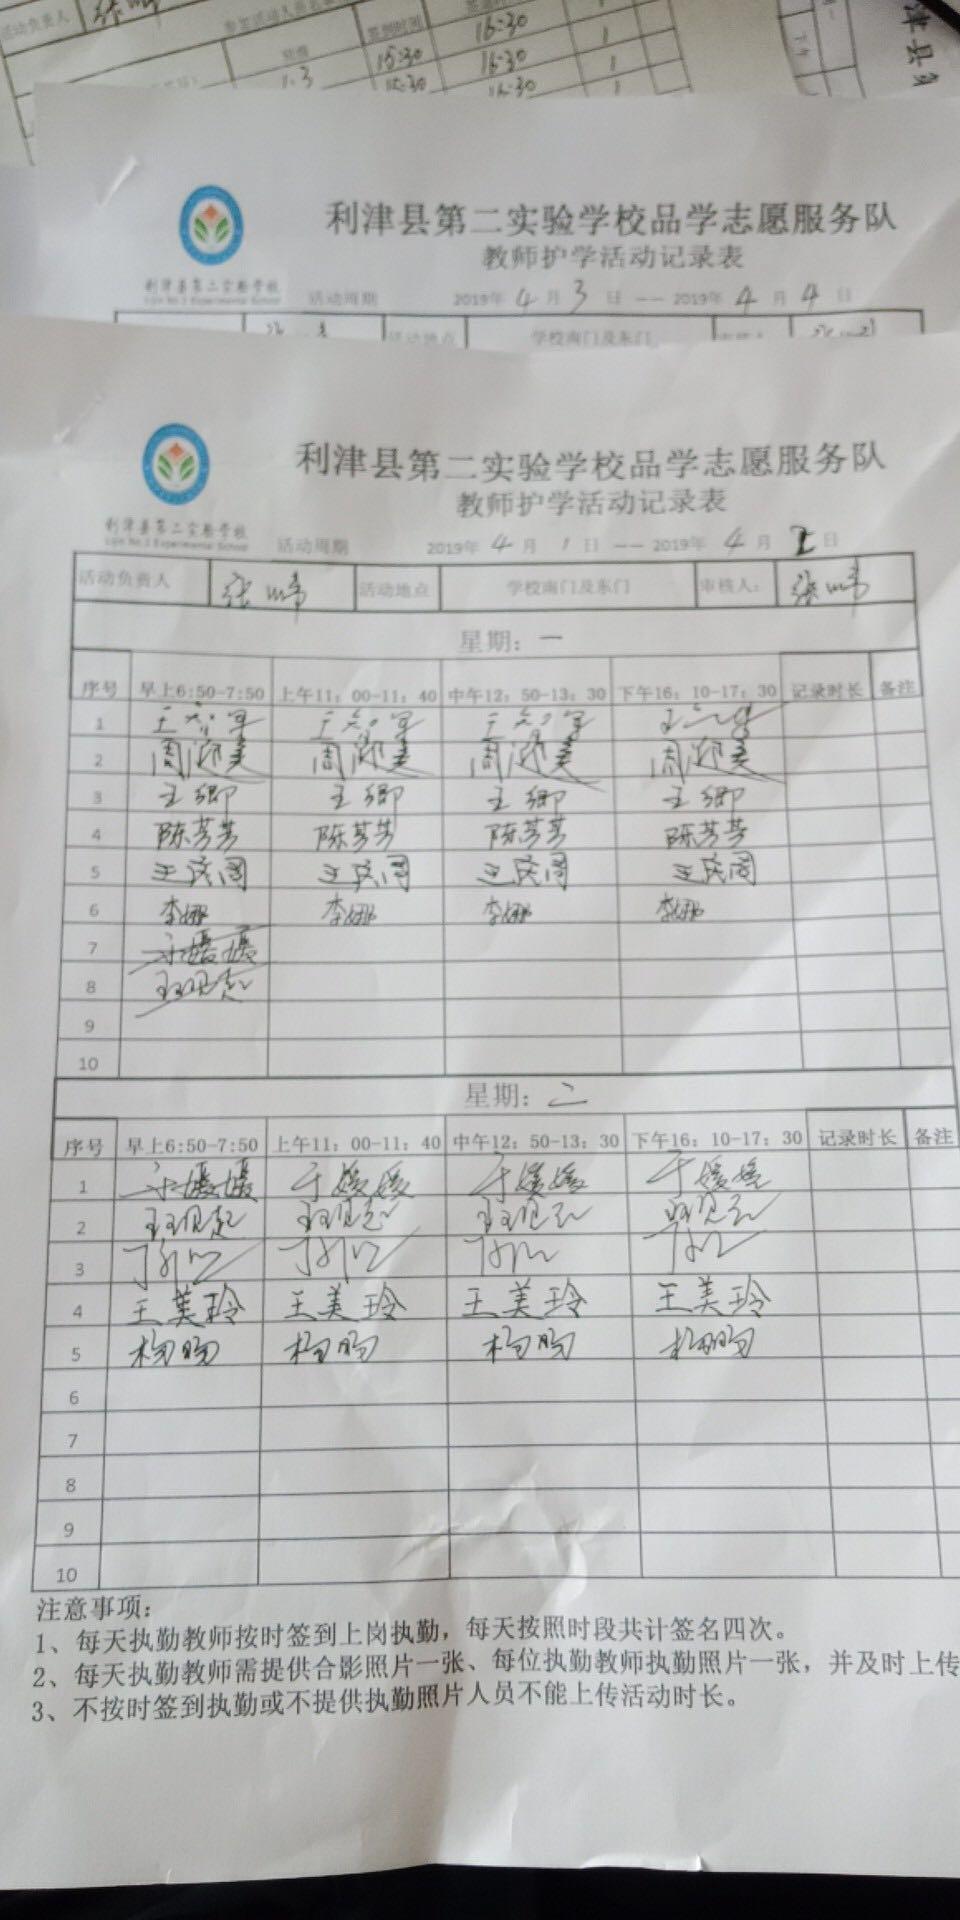 活动负责人
签到时间
16:30
15:30 16:30 1
1.3 15:30 16:30 1
津县
利津县第二实验学校品学志愿服务队
教师护学活动记录表
利津县第二实验学校
Lijin No.2 Experimental School
活动周期 2019年 4 月 3 日 —— 2019年 4 月 4 日
活动地点 学校南门及东门
利津县第二实验学校品学志愿服务队
教师护学活动记录表
利津县第二实验学校
Lijin No.2 Experimental School
活动周期 2019年 4 月 1 日 —— 2019年 4 月 2 日
活动负责人 活动地点 学校南门及东门 审核人：
星期：一
序号 早上6:50-7:50 上午11：00-11：40 中午12：50-13：30 下午16：10-17：30 记录时长 备注
1
2 周迎美 周迎美 周迎美 周迎美
3 王卿 王卿 王卿 王卿
4 陈芳芳 陈芳芳 陈芳芳 陈芳芳
5 王滨周 王滨周 王滨周 王滨周
6 李娜 李娜 李娜 李娜
7
8
9
10
星期：二
序号 早上6:50-7:50 上午11：00-11：40 中午12：50-13：30 下午16：10-17：30 记录时长 备注
1 于媛媛 于媛媛 于媛媛 于媛媛
2
3
4 王美玲 王美玲 王美玲 王美玲
5 杨阳 杨阳 杨阳 杨阳
6
7
8
9
10
注意事项：
1、每天执勤教师按时签到上岗执勤，每天按照时段共计签名四次。
2、每天执勤教师需提供合影照片一张、每位执勤教师执勤照片一张，并及时上传
3、不按时签到执勤或不提供执勤照片人员不能上传活动时长。